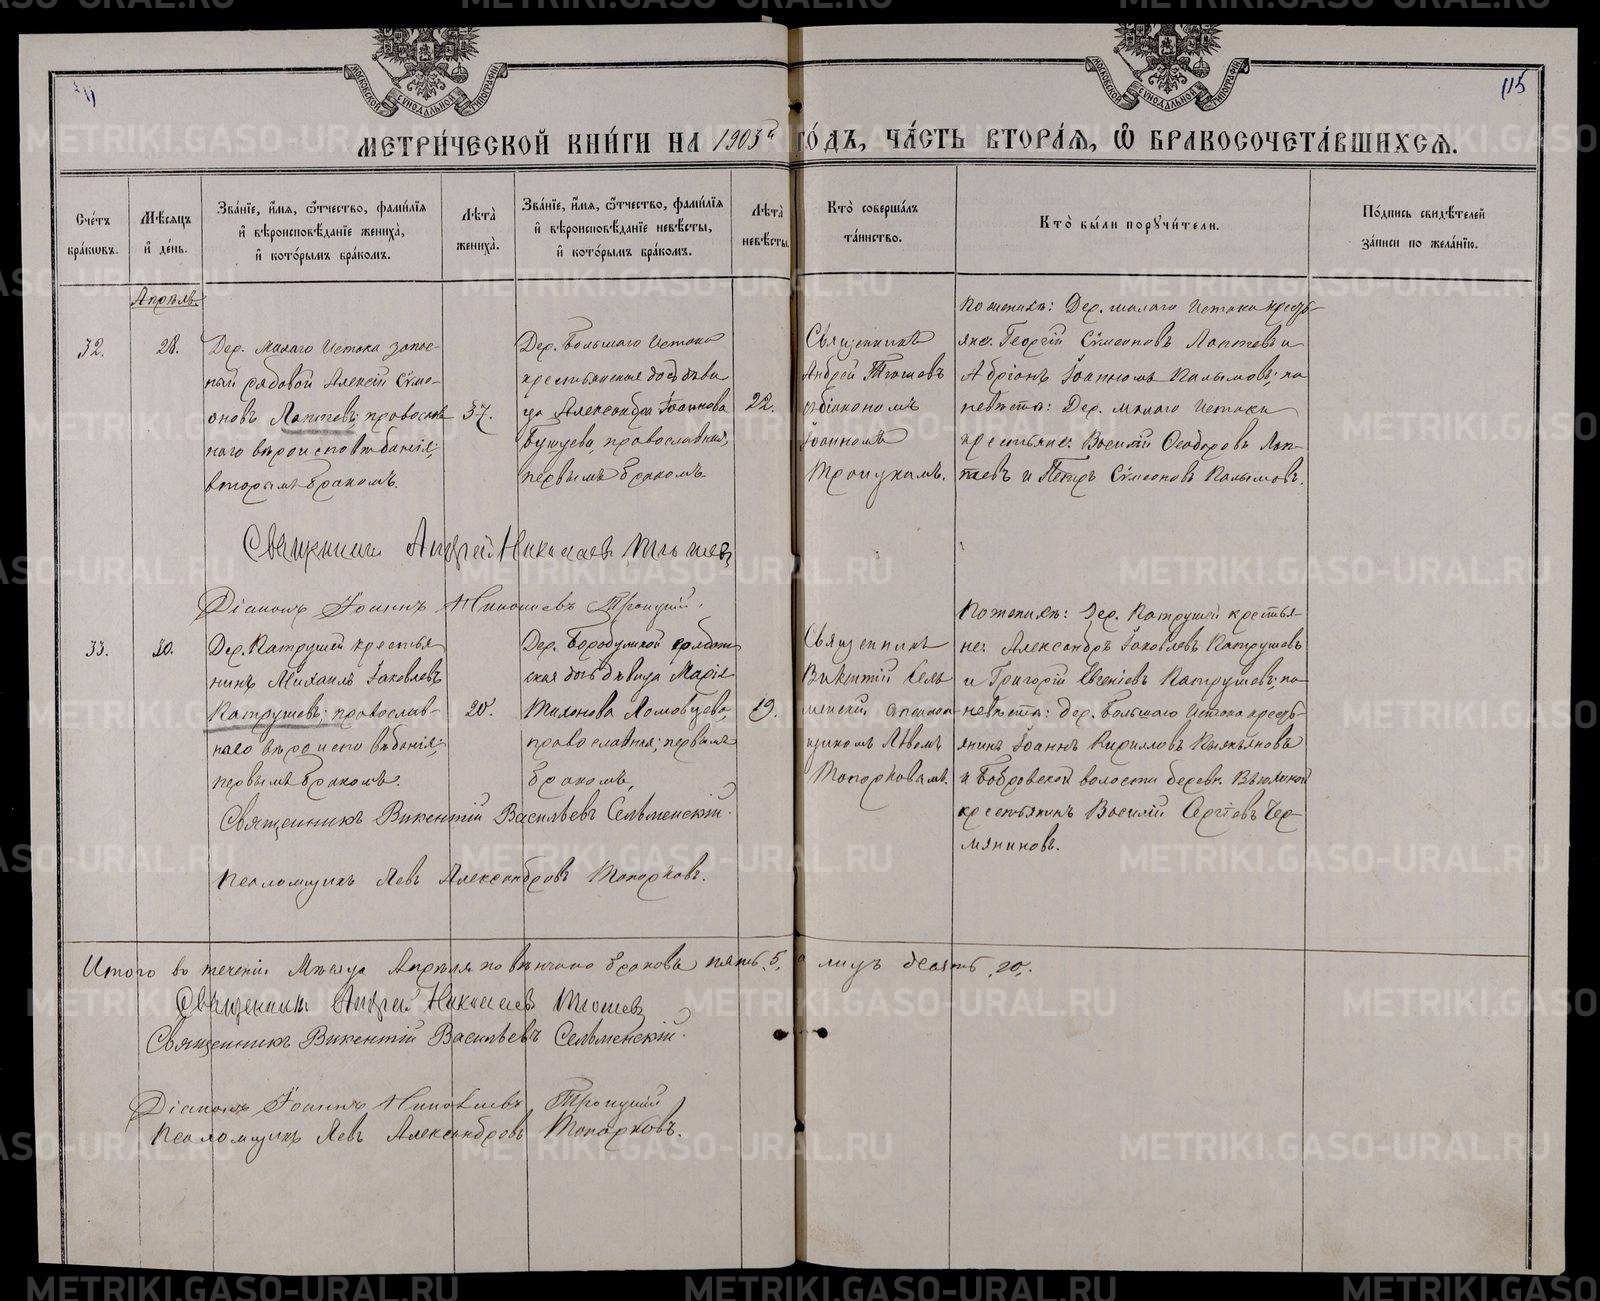 115
МЕТРИ́ЧЕСКОЙ КНИ́ГИ НА 1903й ГО́ДЪ, ЧА́СТЬ ВТОРА́Я, Ѡ҆ БРАКОСОЧЕТА́ВШИХСЯ.
Сче́тъ бра́ковъ.
Мѣ́сяцъ и҆ де́нь.
Зва́нїе, и҆́мя, ѻ҆́тчество, фами́лїя и҆ вѣроисповѣ́данїе жениха̀, и҆ кото́рымъ бра́комъ.
Лѣта̀ жениха̀.
Зва́нїе, и҆́мя, ѻ҆́тчество, фами́лїя и҆ вѣроисповѣ́данїе невѣ́сты, и҆ кото́рымъ бра́комъ.
Лѣта̀ невѣ́сты.
Кто̀ соверша́лъ та́инство.
Кто̀ бы́ли порꙋчи́тели.
По́дпись свидѣ́телей за́писи по жела́нїю.
Апрѣль.
32.
28.
Дер. Малаго Истока запас-
ный рядовой Алексій Сѵме-
оновъ Лаптевъ; православ-
наго вѣроисповѣданія;
вторымъ бракомъ.
37.
Дер. Большаго Истока
крестьянская дочь дѣви-
ца Александра Іоаннова
православная,
первымъ бракомъ.
22.
Священникъ
Андрей
съ діакономъ
Іоанномъ
Троицкимъ.
По женихѣ: Дер. Малаго Истока кресть-
яне: Георгій Сѵмеоновъ Лаптевъ и
Адріанъ Іоанновъ Палымовъ; по
невѣстѣ: Дер. Малаго Истока
крестьяне: Василій Ѳеодоровъ Лап-
тевъ и Петръ Сѵмеоновъ Палымовъ.
Священникъ Андрей Николаевъ
Діаконъ Іоаннъ Николаевъ Троицкій.
33.
30.
Дер. Патрушей крестья-
нинъ Михаилъ Іаковлевъ
Патрушевъ; православ-
наго вѣроисповѣданія;
первымъ бракомъ.
20.
Дер. Бородулиной
дочь дѣвица Марія
Тихонова Ломовцева,
православная; первымъ
бракомъ.
19.
Священникъ
Викентій Сель-
менскій съ псалом-
щикомъ Львомъ
Топорковымъ.
По женихѣ: дер. Патрушей крестья-
не: Александръ Іаковлевъ Патрушевъ
и Григорій Евгеніевъ Патрушевъ; по
невѣстѣ: дер. Большаго Истока кресть-
янинъ Іоаннъ Кирилловъ
и Бобровской волости дерев.
крестьянинъ Василій Сергѣевъ Чер-
мяниновъ.
Священникъ Викентій Васильевъ Сельменскій.
Псаломщикъ Левъ Александровъ Топорковъ.
Итого въ теченіи Мѣсяца Апрѣля повѣнчано браковъ пять 5, а лицъ десять 10.
Священникъ Андрей Николаевъ
Священникъ Викентій Васильевъ Сельменскій.
Діаконъ Іоаннъ Николаевъ Троицкій
Псаломщикъ Левъ Александровъ Топорковъ.
METRIKI.GASO-URAL.RU